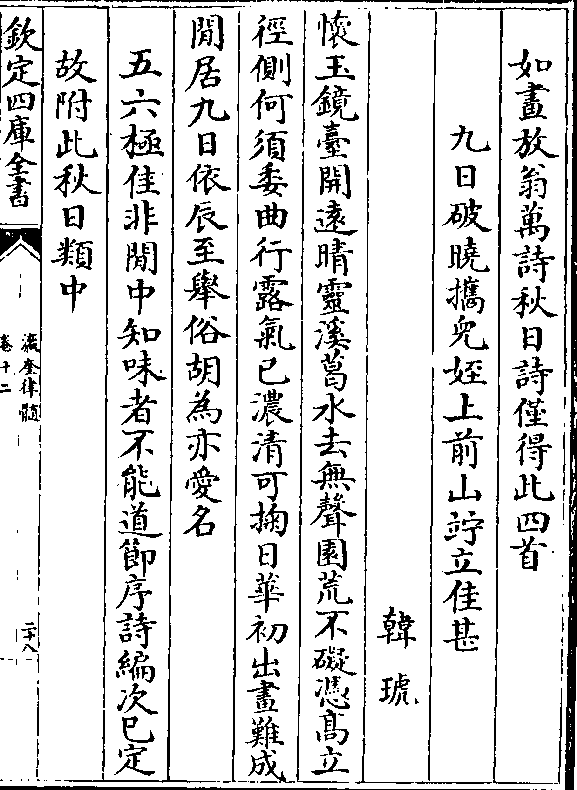 如畫放翁萬詩秋日詩僅得此四首
九日破曉攜兒姪上前山竚立佳甚
韓琥
懷玉鏡臺開遠晴靈溪葛水去無聲園荒不礙憑髙立
徑側何須委曲行露氣已濃清可掬日華初出畫難成
閒居九日依辰至舉俗胡為亦愛名
五六極佳非閒中知味者不能道節序詩編次已定
故附此秋日類中
欽定四庫全書
瀛奎律髓
卷十二
二十八